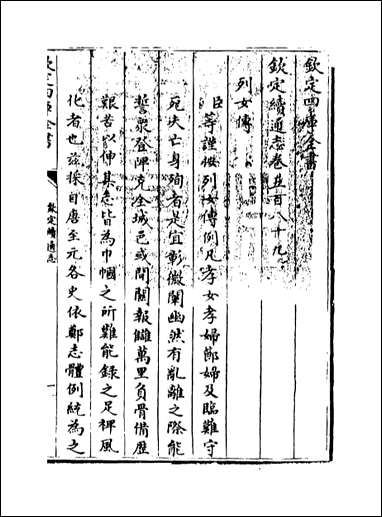 欽定四庫全書
欽定續通志卷五百八十九
列女傳
臣等謹按列女傳例凡孝女孝婦節婦及臨難守
死失亡身殉者是宜彰微闡幽然有亂離之際能
誓衆登陴克全城邑或間關報讎萬里負骨備歷
艱苦以伸其志皆為巾幗之所難能録之足裨風
化者也兹採自唐至元各史依鄭志體例統為之
欽定四庫全書
欽定續通志
一